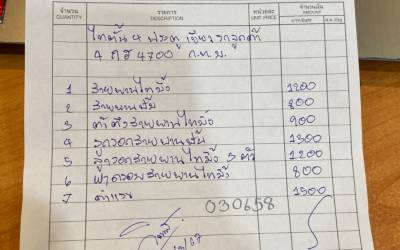 จำนวน รายการ หน่วยละ จำนวนเงิน
QUANTITY DESCRIPTION UNIT PRICE AMOUNT
ไตตั้น 4 ประตู เขียว
4 กฮ 4700 ก.ท.ม.
1 สายพานไทม์มิ่ง 1200
2 สายพาน 800
3 ตัวตึงสายพานไทม์มิ่ง 900
4 ลูกรอกสายพาน 1300
5 ลูกรอกสายพานไทม์มิ่ง 3 ตัว 1200
6 ฝาครอบสายพานไทม์มิ่ง 800
7 ค่าแรง 1500
030658